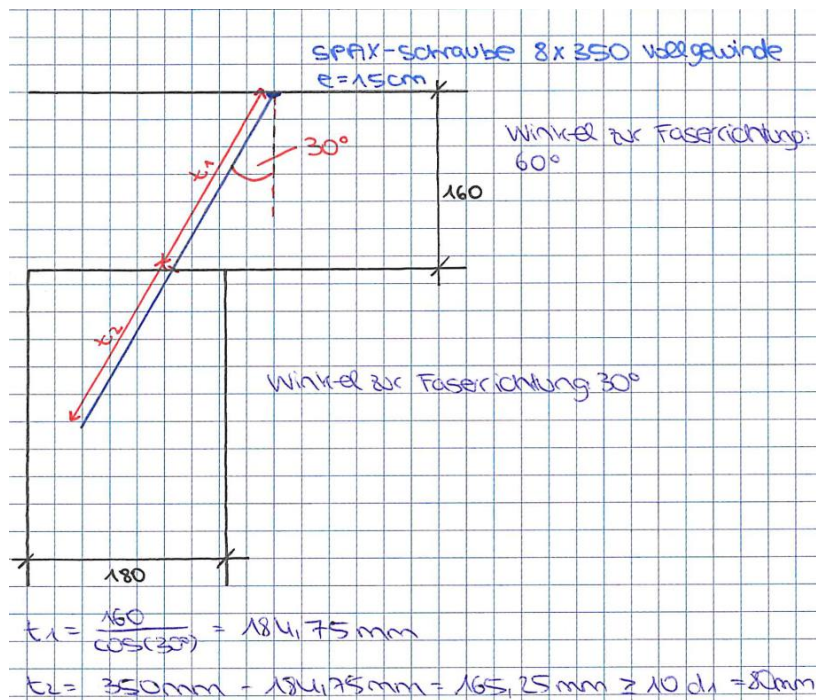 SPAX-Schraube 8x350 Vollgewinde
e=15cm
30°
Winkel zur Faserrichtung:
60°
t1
160
t2
Winkel zur Faserrichtung 30°
180
t1= 160/cos(30°) = 184,75mm
t2= 350mm - 184,75mm = 165,25mm ≥ 10 d1 = 80mm